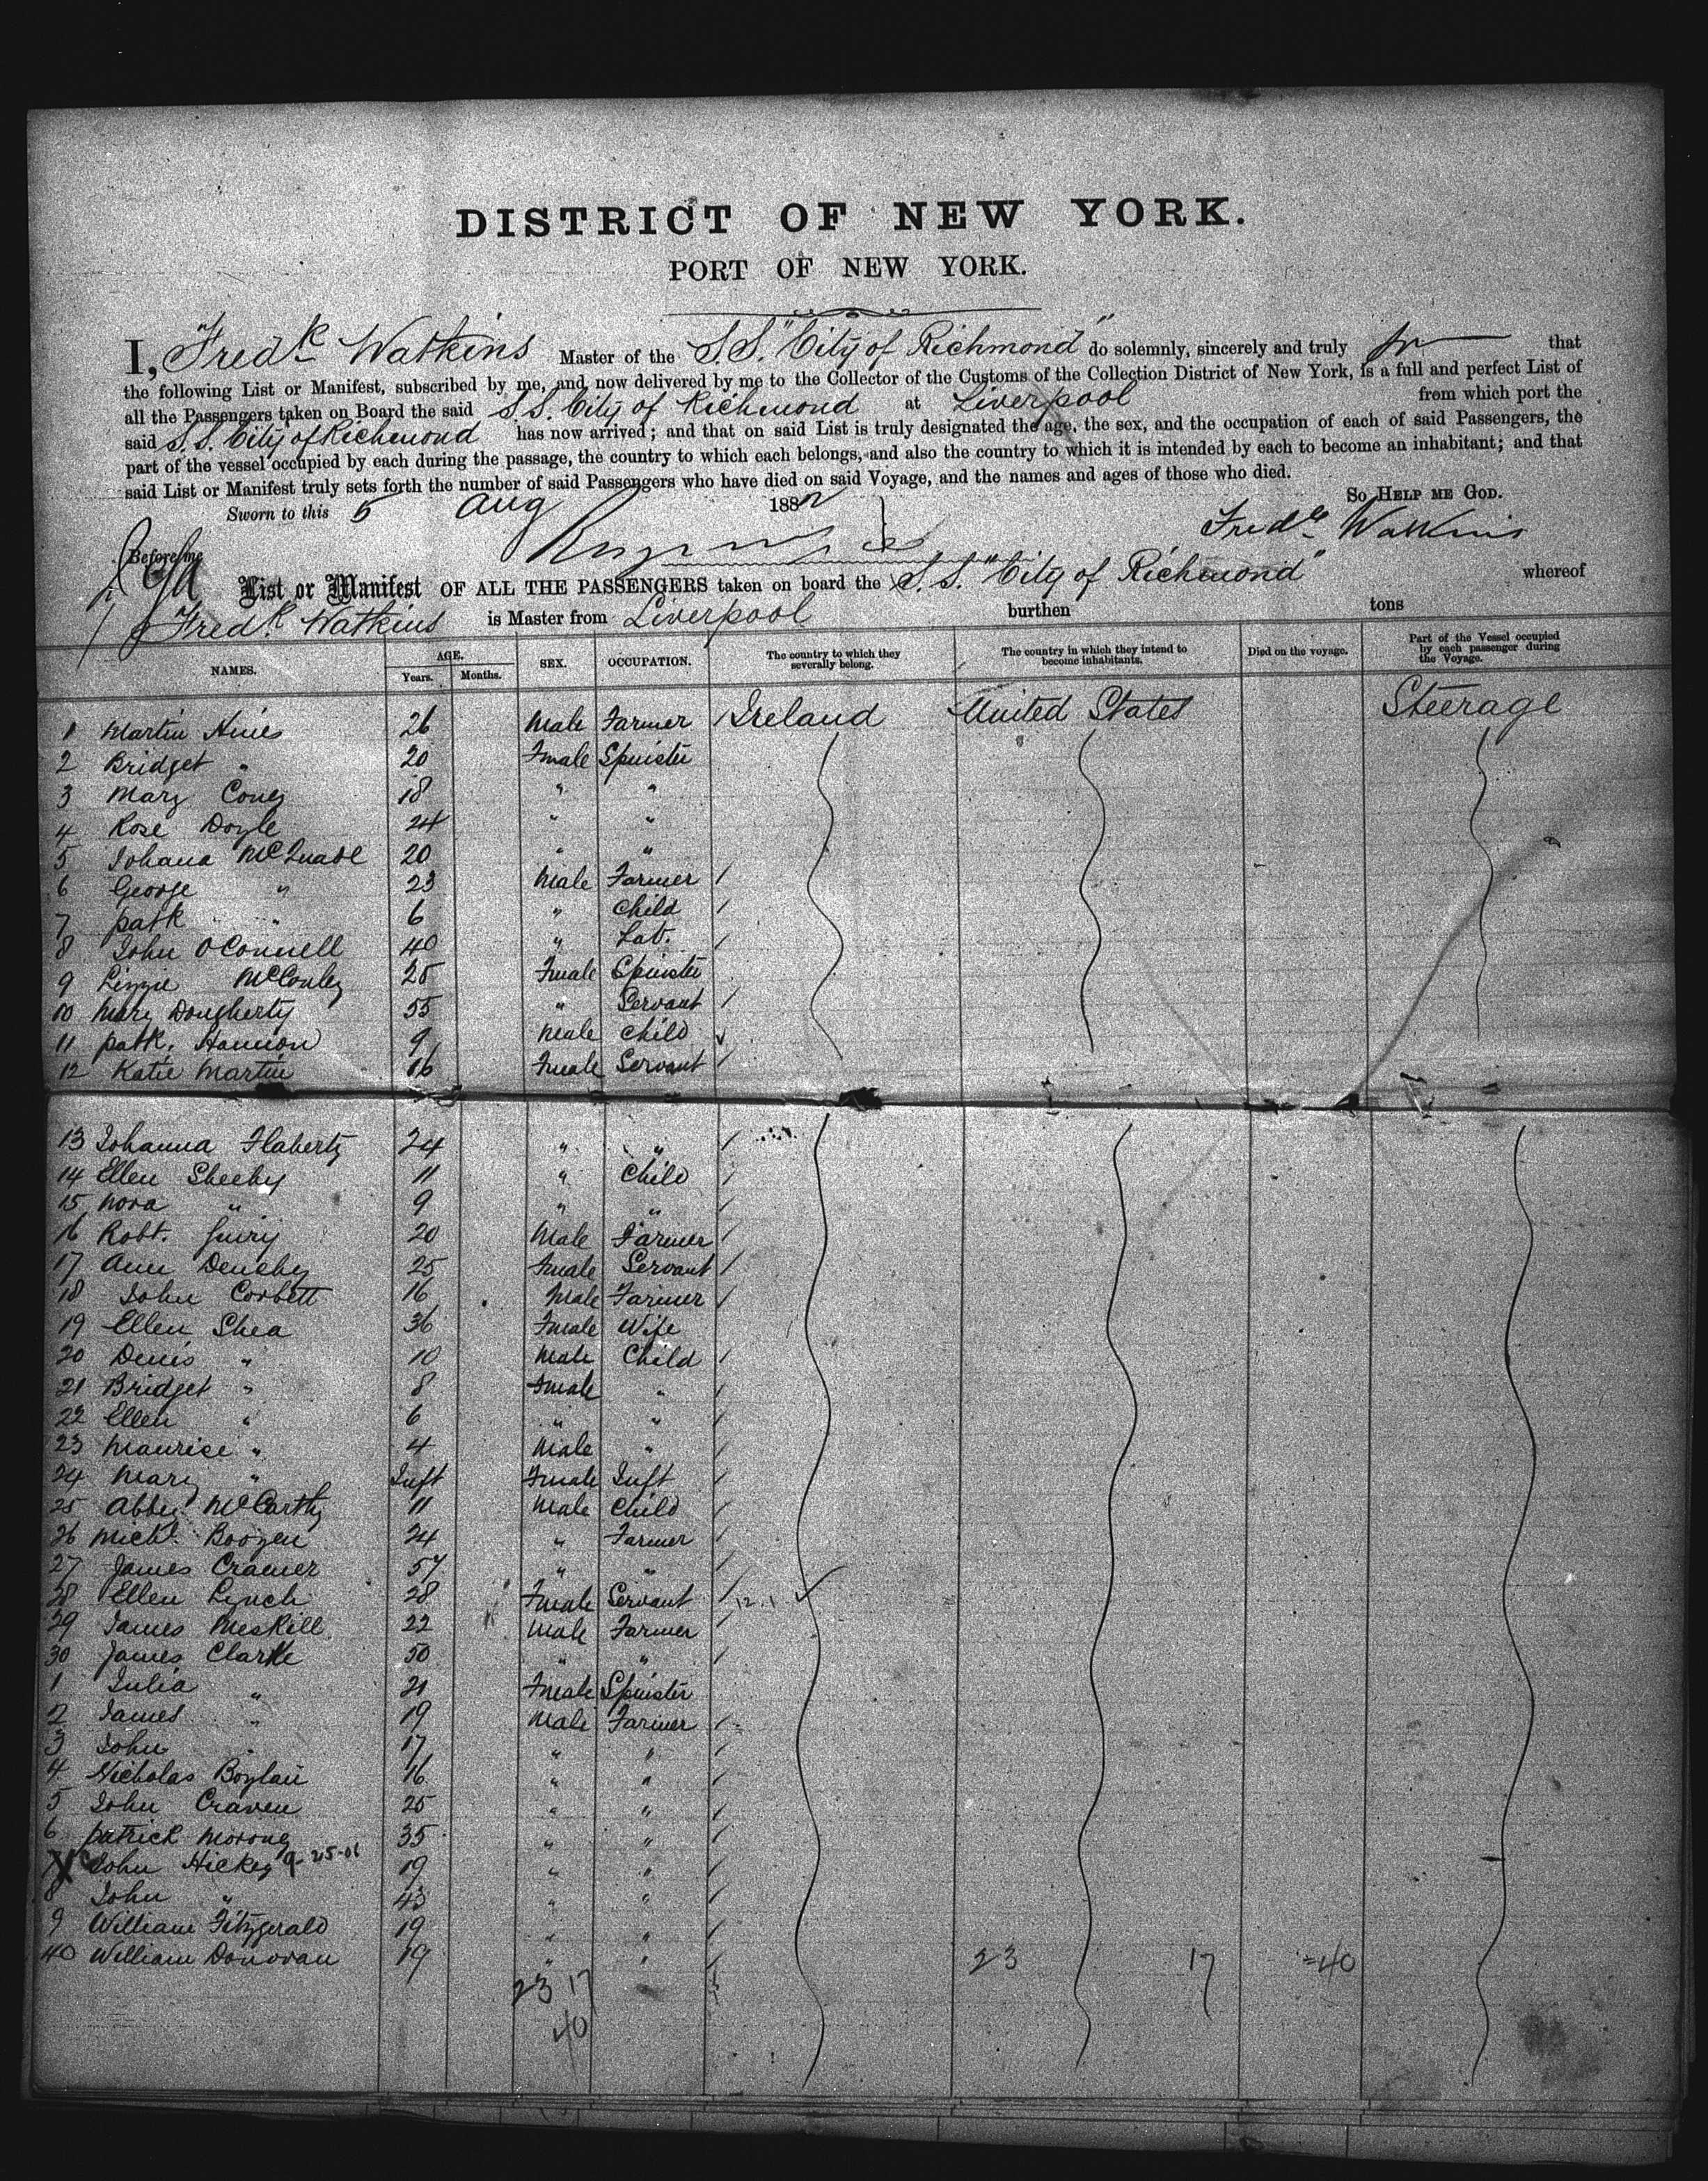 DISTRICT OF NEW YORK.
PORT OF NEW YORK.
I, Fredk Watkins Master of the S.S. "City of Richmond" do solemnly, sincerely and truly that
the following List or Manifest, subscribed by me, and now delivered by me to the Collector of the Customs of the Collection District of New York, is a full and perfect List of
all the Passengers taken on Board the said S.S. City of Richmond at Liverpool from which port the
said S.S. City of Richmond has now arrived; and that on said List is truly designated the age, the sex, and the occupation of each of said Passengers, the
part of the vessel occupied by each during the passage, the country to which each belongs, and also the country to which it is intended by each to become an inhabitant; and that
said List or Manifest truly sets forth the number of said Passengers who have died on said Voyage, and the names and ages of those who died.
So HELP ME GOD.
Sworn to this 5 Aug 1882
Fredk Watkins
Before me
List or Manifest OF ALL THE PASSENGERS taken on board the S.S. "City of Richmond" whereof
Fredk Watkins is Master from Liverpool burthen tons
NAMES. AGE. Years. Months. SEX. OCCUPATION. The country to which they severally belong. The country in which they intend to become inhabitants. Died on the voyage. Part of the Vessel occupied by each passenger during the Voyage.
1 Martin Hines 26 Male Farmer Ireland United States Steerage
2 Bridget " 20 Fmale Spinster
3 Mary 18 " "
4 Rose Doyle 24 " "
5 Johana McQuade 20 " "
6 George " 23 Male Farmer
7 Patk " 6 " Child
8 John OConnell 40 " Lab.
9 Lizzie 25 Fmale Spinster
10 Mary Dougherty 55 " Servant
11 Patk. Hannon 9 Male Child
12 Katie Martin 16 Fmale Servant
13 Johanna Flaherty 24 " "
14 Ellen Sheehy 11 " Child
15 Nora " 9 " "
16 Robt. 20 Male Farmer
17 Ann Denehy 25 Fmale Servant
18 John Corbett 16 Male Farmer
19 Ellen Shea 36 Fmale Wife
20 Denis " 10 Male Child
21 Bridget " 8 Fmale "
22 Ellen " 6 " "
23 Maurice " 4 Male "
24 Mary " Inft Fmale Inft
25 Abby McCarthy 11 Male Child
26 Michl. 24 " Farmer
27 James Cramer 57 " "
28 Ellen Lynch 28 Fmale Servant
29 James Meskill 22 Male Farmer
30 James Clarke 50 " "
1 Julia " 21 Fmale Spinster
2 James " 19 Male Farmer
3 John " 17 " "
4 Nicholas Boylan 16 " "
5 John Craven 25 " "
6 Patrick Morony 35 " "
John Hickey 9-25-01 19 " "
8 John " 43 " "
9 William Fitzgerald 19 " "
40 William Donovan 19 " " 23 17 =40
23 17
40